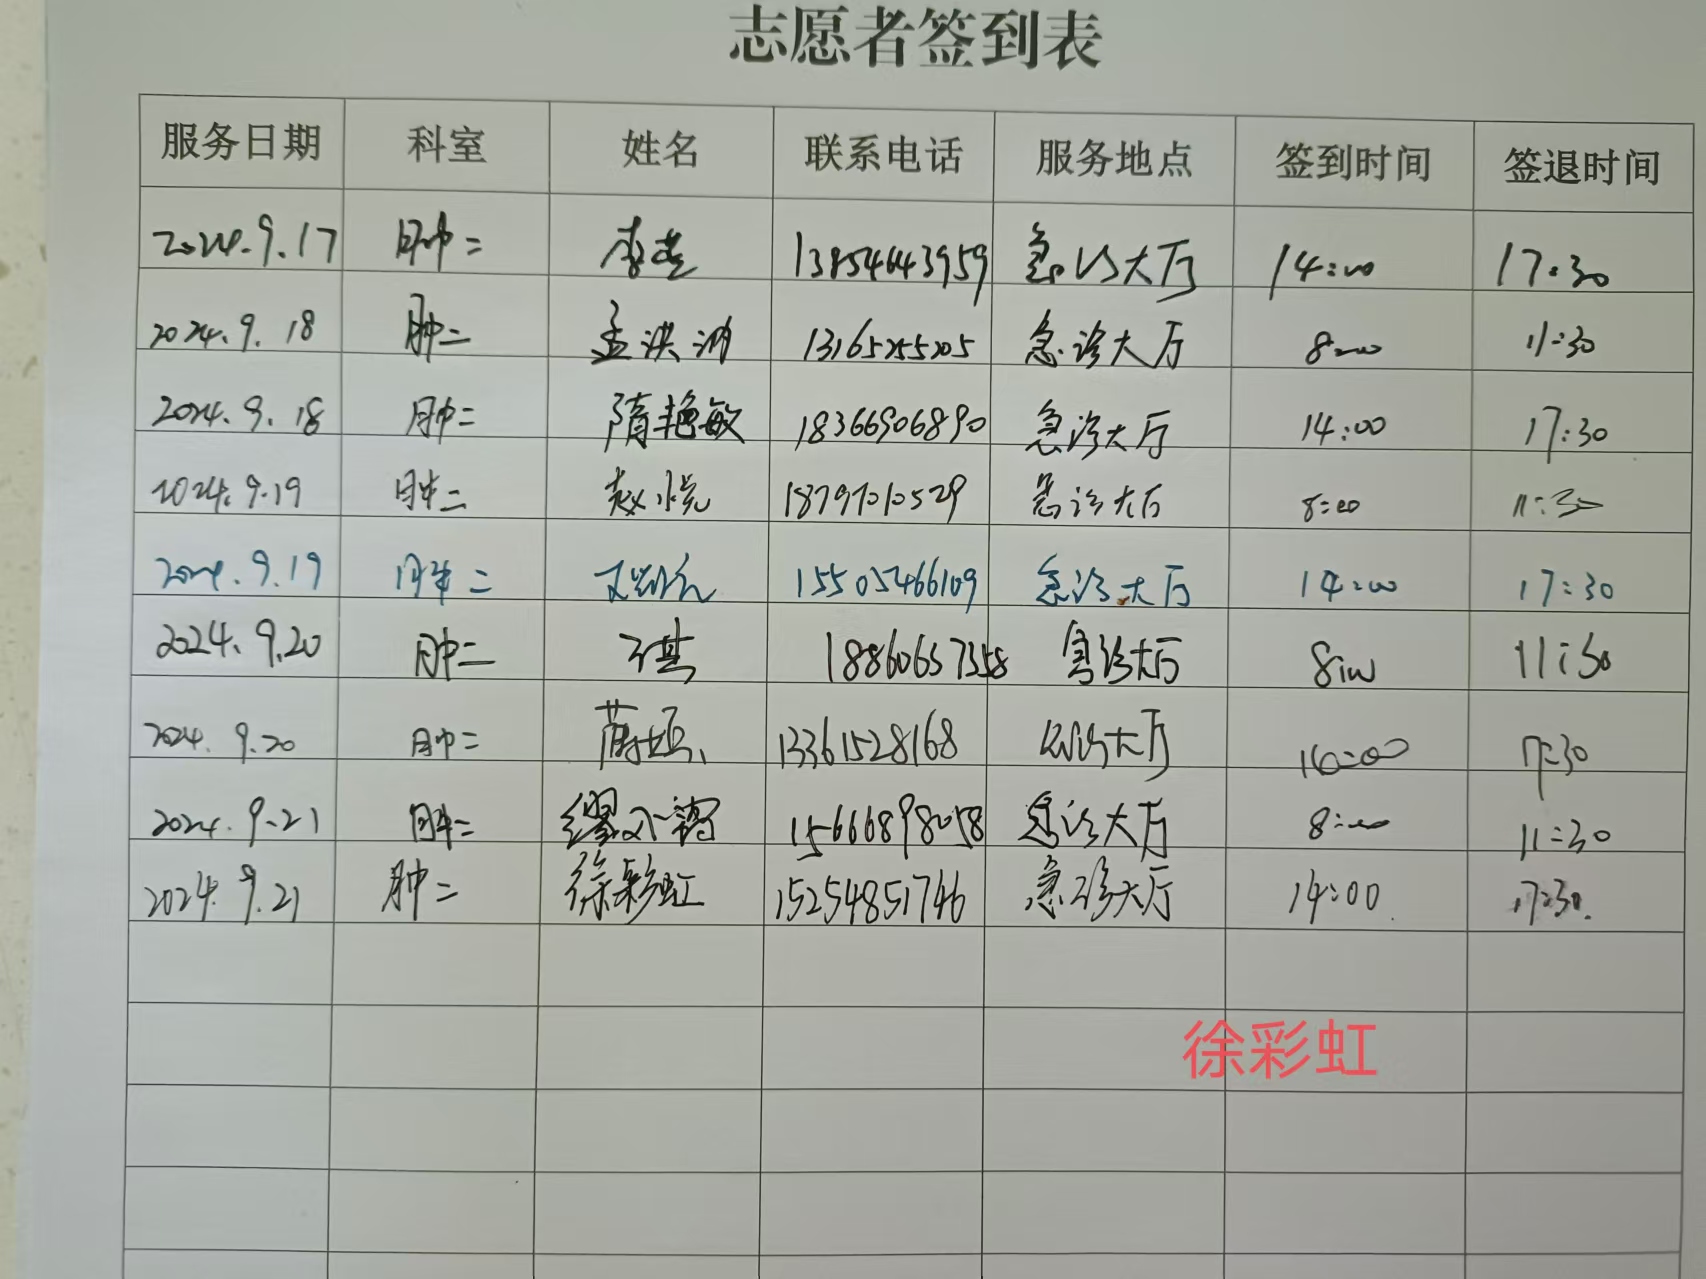 志愿者签到表
服务日期 科室 姓名 联系电话 服务地点 签到时间 签退时间
2024.9.17 肿二 李 13854643959 急诊大厅 14:00 17:30
2024.9.18 肿二 孟洪 13165255205 急诊大厅 8:00 11:30
2024.9.18 肿二 隋艳敏 18366906890 急诊大厅 14:00 17:30
2024.9.19 肿二 赵悦 18797010529 急诊大厅 8:00 11:30
2024.9.19 肿二 15505466109 急诊大厅 14:00 17:30
2024.9.20 肿二 18860657358 急诊大厅 8:00 11:30
2024.9.20 肿二 13361528168 急诊大厅 17:30
2024.9.21 肿二 15666898058 急诊大厅 8:00 11:30
2024.9.21 肿二 徐彩虹 15254851746 急诊大厅 14:00 17:30.
徐彩虹